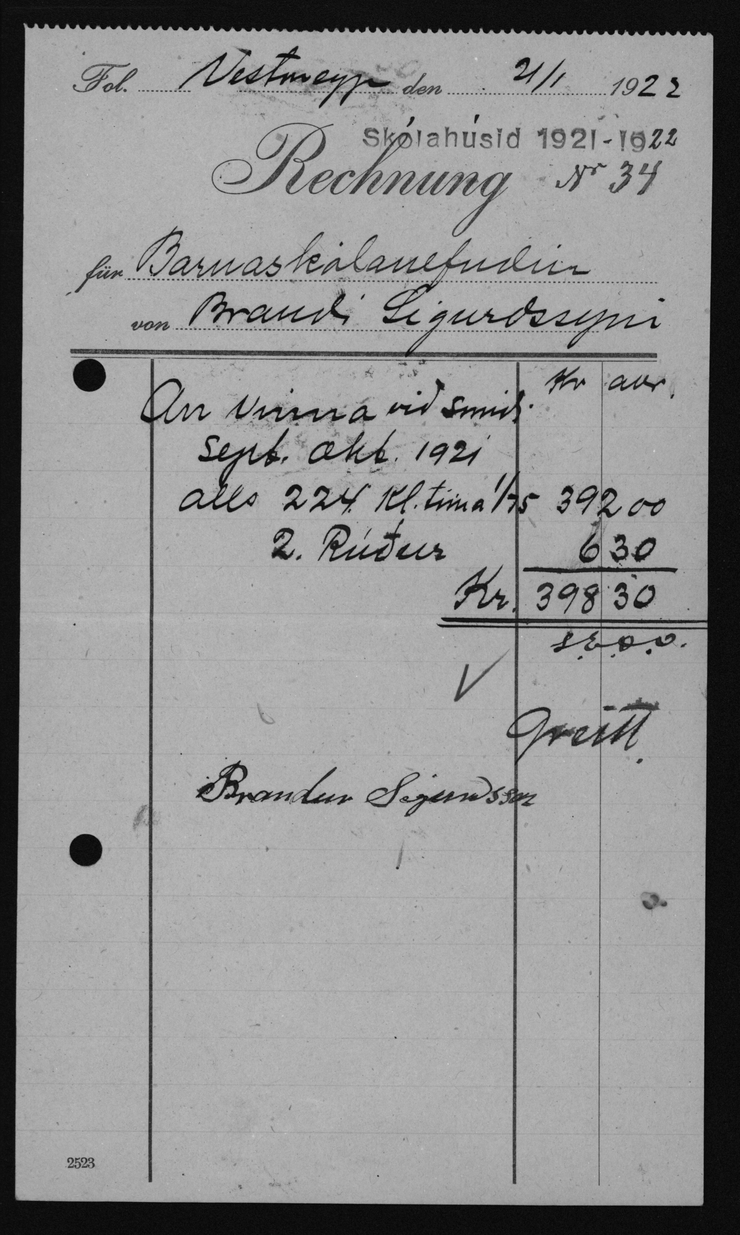 Fol. Vestmeyjr den 21/1 1922
Skólahúsid 1921-1922
Rechnung Nr 34
für Barnaskólanefndin
von Brandi Sigurðssyni
Kr aur.
An Vinna við smíði
Sept. Okt. 1921
alls 224 Kl. tíma 1/75 392 00
2. Rúður 6 30
Kr. 398 30
s.e.o.o.
Greitt
Brandur Sigurdsson
2523